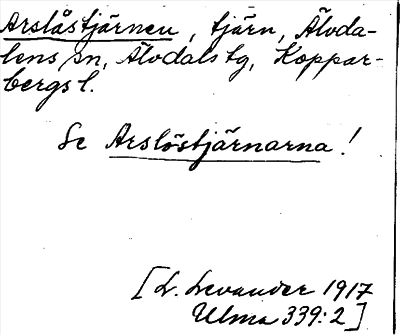 Arslåstjärnen, tjärn, Älvda-
lens sn, Älvdals tg, Koppar-
bergs l.
Se Arslöstjärnarna!
[L. Levander 1917
Ulma 339:2]